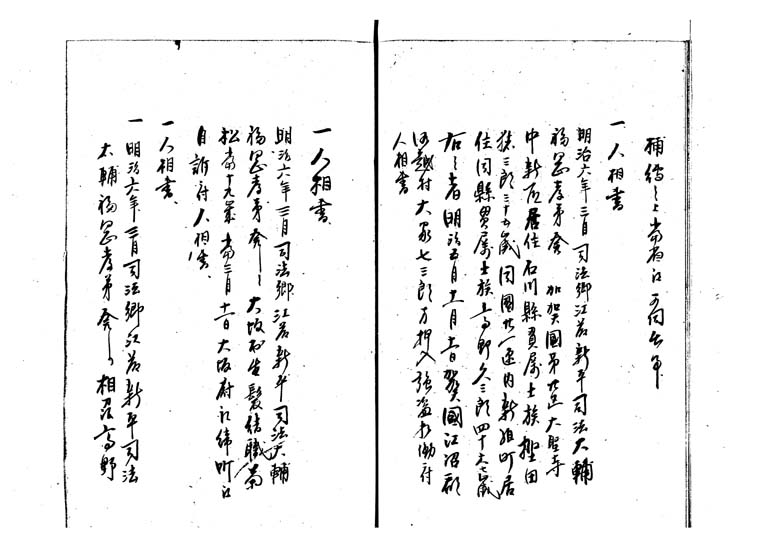 補縛之上當省江可伺出事
一人相書
明治六年三月司法卿江藤新平司法大輔
福岡孝弟発 加賀國第廿区大聖寺
中新居住石川縣貫属士族 田
三郎三十五歳同國廿一区内新組町居
住同縣貫属士族上 野久三郎四十七歳
右之者明治五月十一月十日賀國江沼郡
村大家七三郎方押入強盗相働付
人相書
一人相書
明治六年三月司法卿江藤新平司法大輔
福岡孝弟発之大坂出生髪結職菊
松当十九歳当三月十一日大坂府江縛町江
自訴付人相書
一人相書
一明治六年三月司法卿江藤新平司法
大輔福岡孝弟発之相沼高野